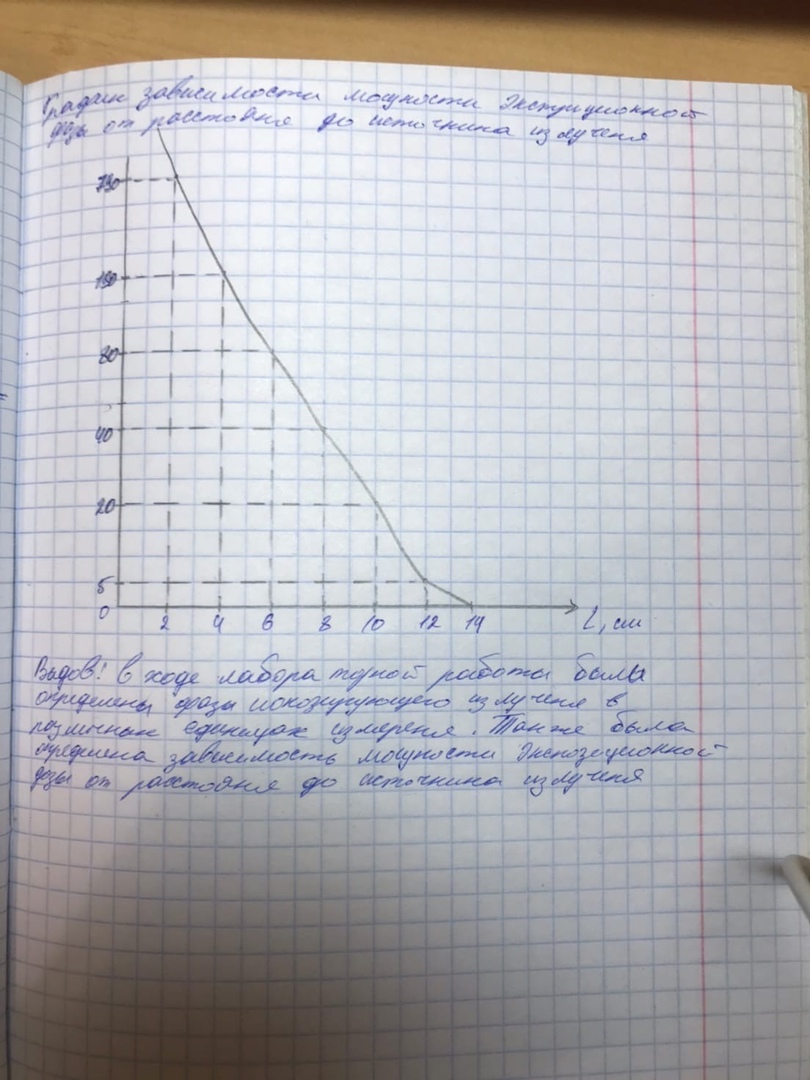 График зависимости мощности экспциционной
дозы от расстояня до источника излученя
730
190
80
40
20
5
0
2 4 6 8 10 12 14 L, см
Вывов! в ходе лабораторной работы были
определены дозы ионозирующего излученя в
различных единицах измереня. Также была
определена зависимость мощности экспозиционной
дозы от расстояня до источника излученя